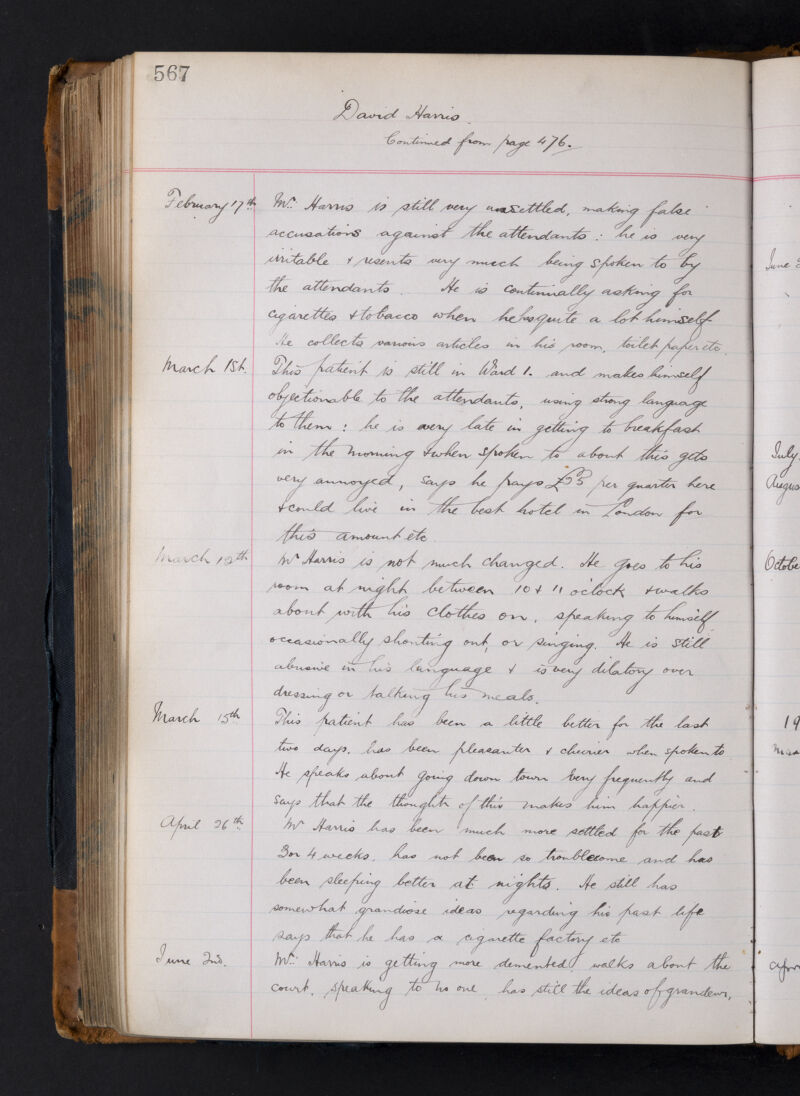 567
David Harris.
Continued from page 476.
February 17th Mr. Harris is still very unsettled, making false
accusations against the attendants: he is very
irritable & resents very much being spoken to by
the attendants. He is continually asking for
cigarettes & tobacco when he has quite a lot himself
He collects various articles in his room, toilet paper etc.
March 1st. This patient is still in Ward 1. and makes himself
objectionable to the attendants, using strong language
to them: he is very late in getting to breakfast
in the morning & when spoken to about this gets
very annoyed, says he pays per quarter here
& could live in the best hotel in London for
this amount etc.
March Mr Harris is not much changed. He goes to his
room at night between 10 & 11 o'clock & walks
about with his clothes on, speaking to himself
occasionally shouting out, or singing. He is still
abusive in his language & is very dilatory over
dressing or talking his meals.
March 15th This patient has been a little better for the last
two days, has been pleasanter & cheerier when spoken to
He speaks about going down town very frequently and
says that the thought of this makes him happier.
April 26th. Mr Harris has been much more settled for the past
3 or 4 weeks, has not been so troublesome and has
been sleeping better at nights. He still has
somewhat grandiose ideas regarding his past life
says that he has a cigarette factory etc
June 2nd. Mr. Harris is getting more demented, walks about the
court, speaking to no one, has still the ideas of grandeur,
June
July
Augus
Octobe
19